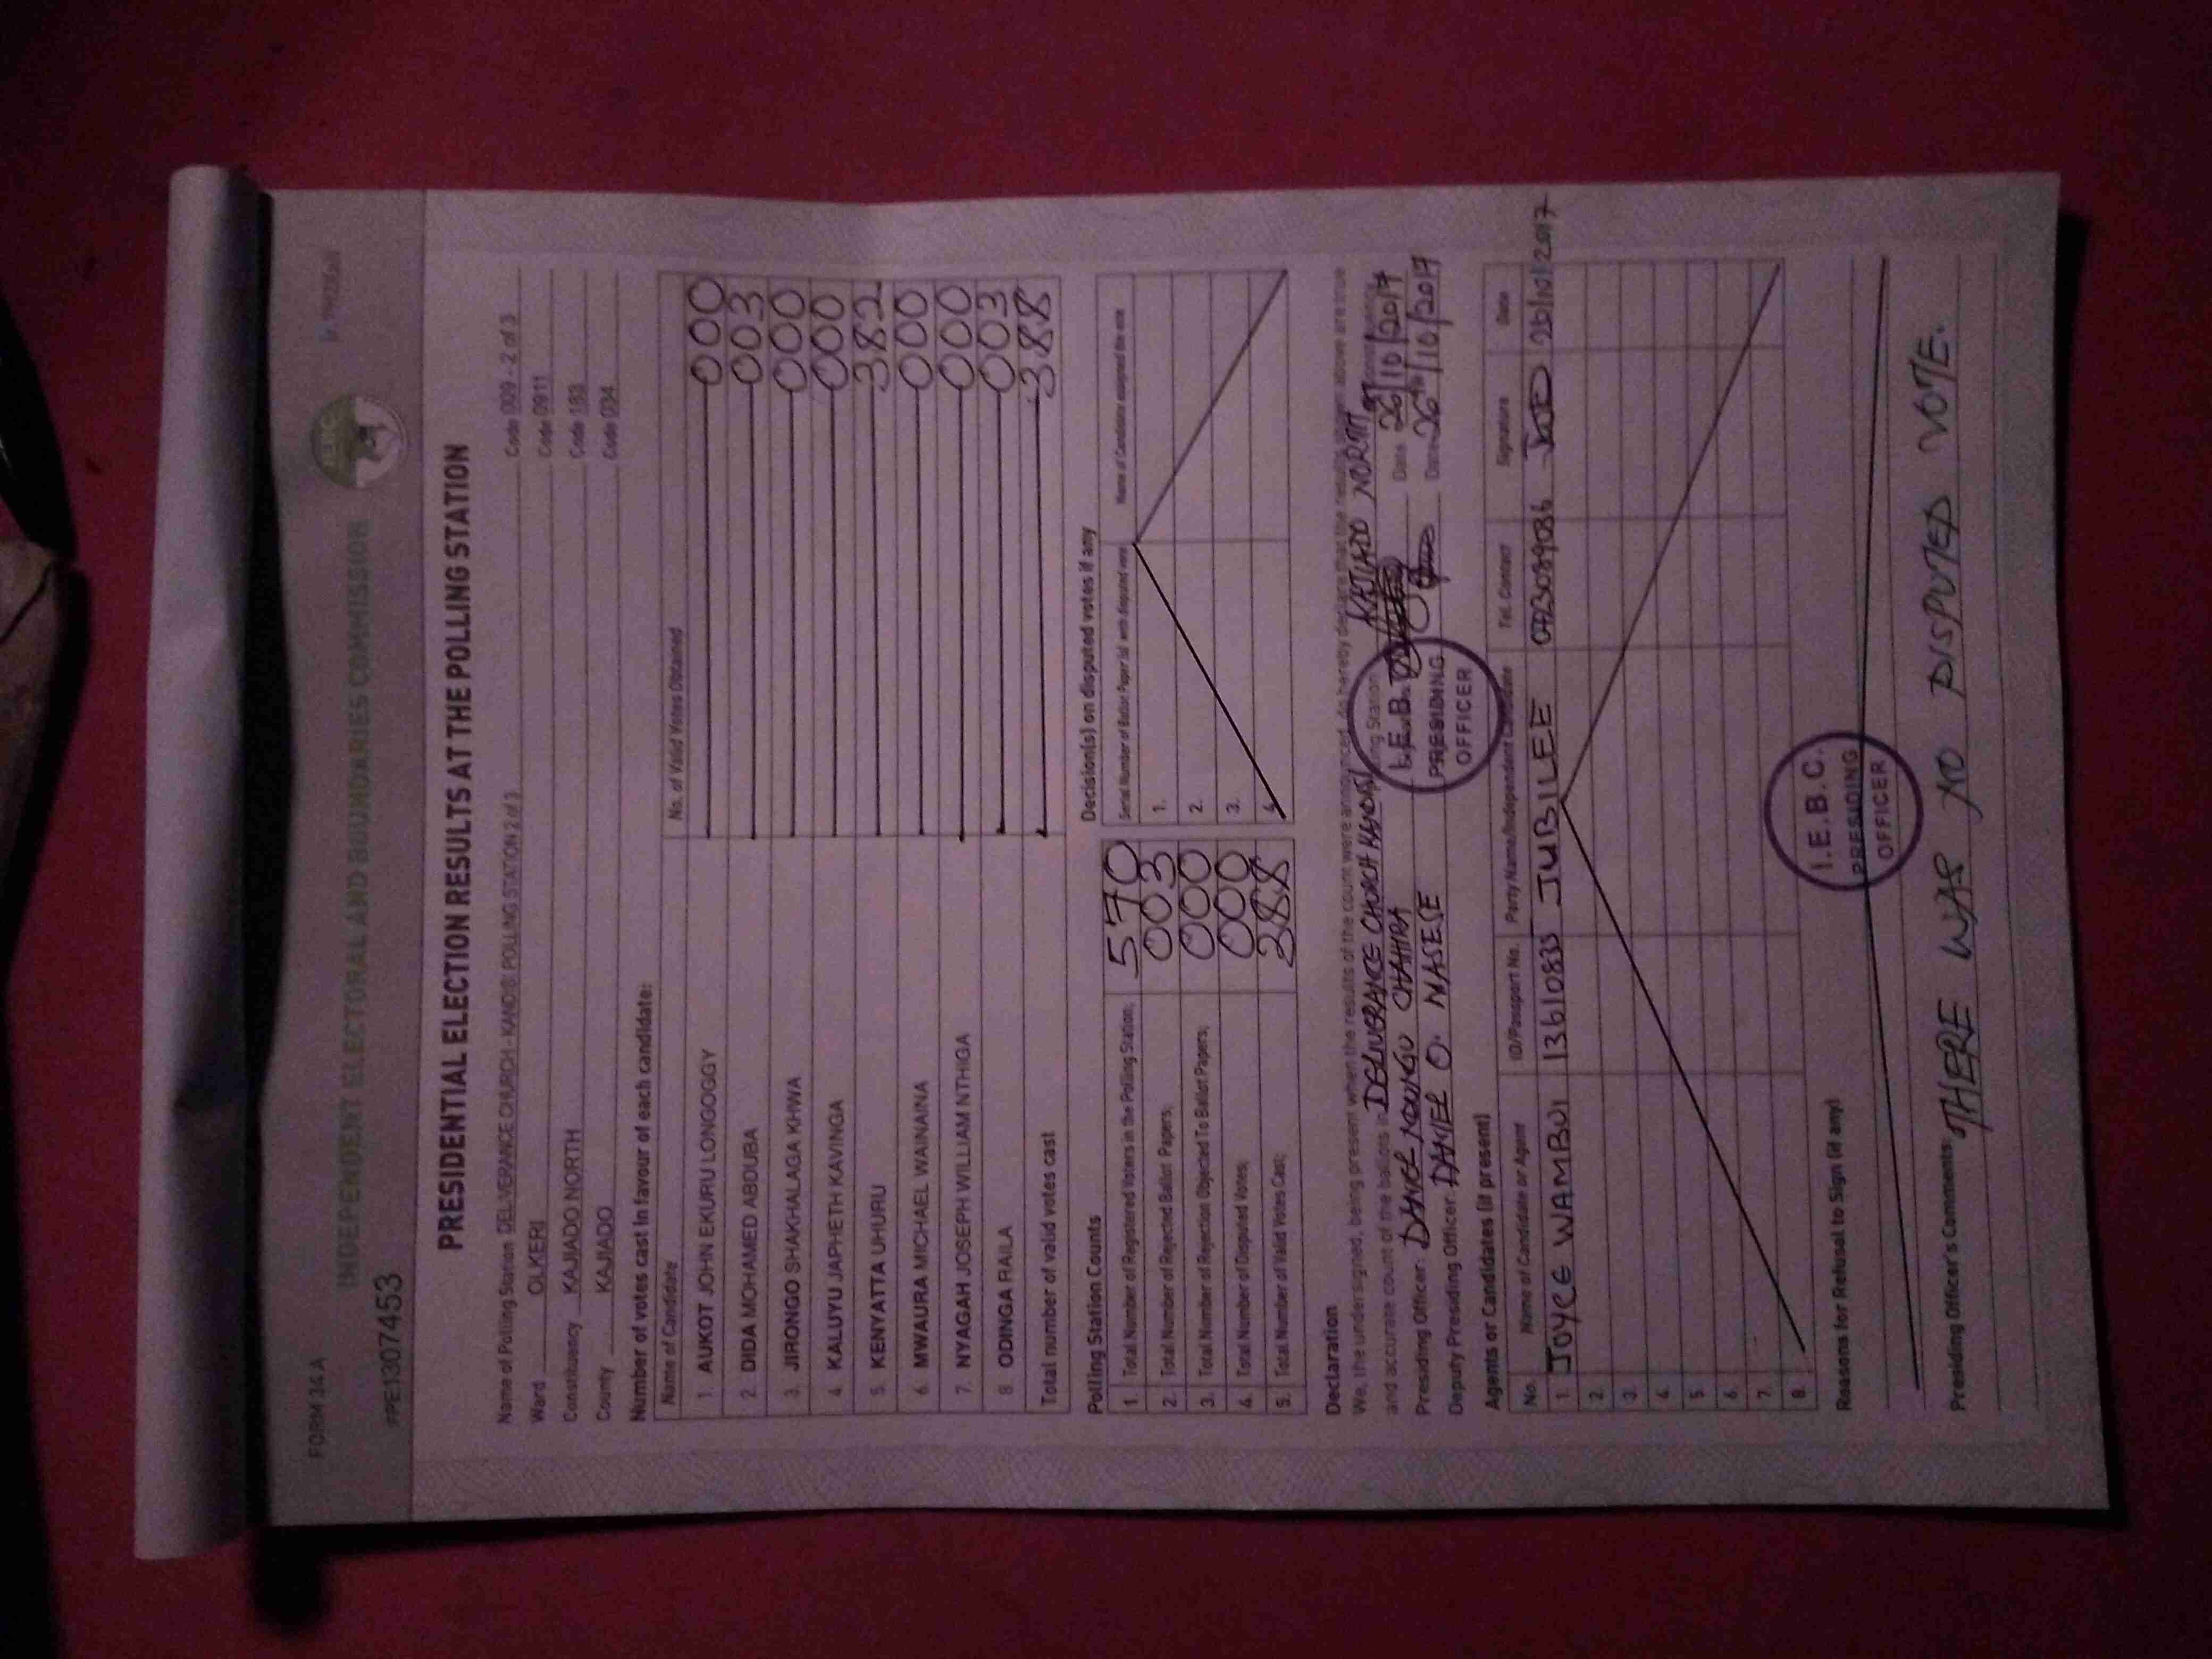 FORM 34A
INDEPENDENT ELECTORAL AND BOUNDARIES COMMISSION
PPE1307453
PRESIDENTIAL ELECTION RESULTS AT THE POLLING STATION
Name of Polling Station DELIVERANCE CHURCH - KANDISI POLLING STATION 2 of 3 Code 009 - 2 of 3
Ward OLKERI Code 0911
Constituency KAJIADO NORTH Code 183
County KAJIADO Code 034
Number of votes cast in favour of each candidate:
Name of Candidate No. of Valid Votes Obtained
1. AUKOT JOHN EKURU LONGOGGY 000
2. DIDA MOHAMED ABDUBA 003
3. JIRONGO SHAKHALAGA KHWA 000
4. KALUYU JAPHETH KAVINGA 000
5. KENYATTA UHURU 382
6. MWAURA MICHAEL WAINAINA 000
7. NYAGAH JOSEPH WILLIAM NTHIGA 000
8. ODINGA RAILA 003
Total number of valid votes cast 388
Polling Station Counts
1. Total Number of Registered Voters in the Polling Station; 570
2. Total Number of Rejected Ballot Papers; 003
3. Total Number of Rejection Objected To Ballot Papers; 000
4. Total Number of Disputed Votes; 000
5. Total Number of Valid Votes Cast; 388
Decision(s) on disputed votes if any
Serial Number of Ballot Paper (s) with disputed vote Name of Candidate awarded the vote
1.
2.
3.
4.
Declaration
We, the undersigned, being present when the results of the count were announced, do hereby declare that the results shown above are true
and accurate count of the ballots in DELIVERANCE CHURCH KANDISI Polling Station KAJIADO NORTH
Presiding Officer: Date 26/10/2017
Deputy Presiding Officer: DANIEL O. MASESE Date 26th/10/2017
I.E.B.C.
PRESIDING
OFFICER
Agents or Candidates (if present)
No. Name of Candidate or Agent ID/Passport No. Party Name/Independent Candidate Tel. Contact Signature Date
1. JOYCE WAMBUI 13610833 JUBILEE 0723089086 26/10/2017
2.
3.
4.
5.
6.
7.
8.
Reasons for Refusal to Sign (if any)
I.E.B.C.
PRESIDING
OFFICER
Presiding Officer's Comments: THERE WAS NO DISPUTED VOTE.